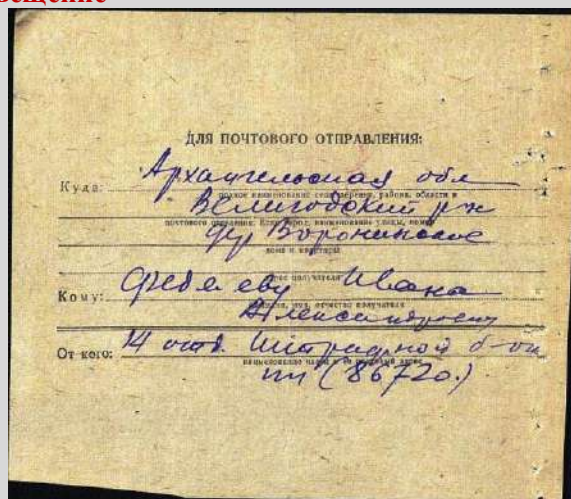 ДЛЯ ПОЧТОВОГО ОТПРАВЛЕНИЯ:
Куда: Архангельская обл
полное наименование села, района, области и
Вельгодский р-н
почтового отделения. Если город, наименование улицы, номер
дер Воронинское
дома и квартиры
адрес получателя
Кому: Ивана
фамилия, имя, отчество получателя
Александрович
От кого: 14 отд. Штрафной б-он
наименование части и ее почтовый адрес
пп (86720.)